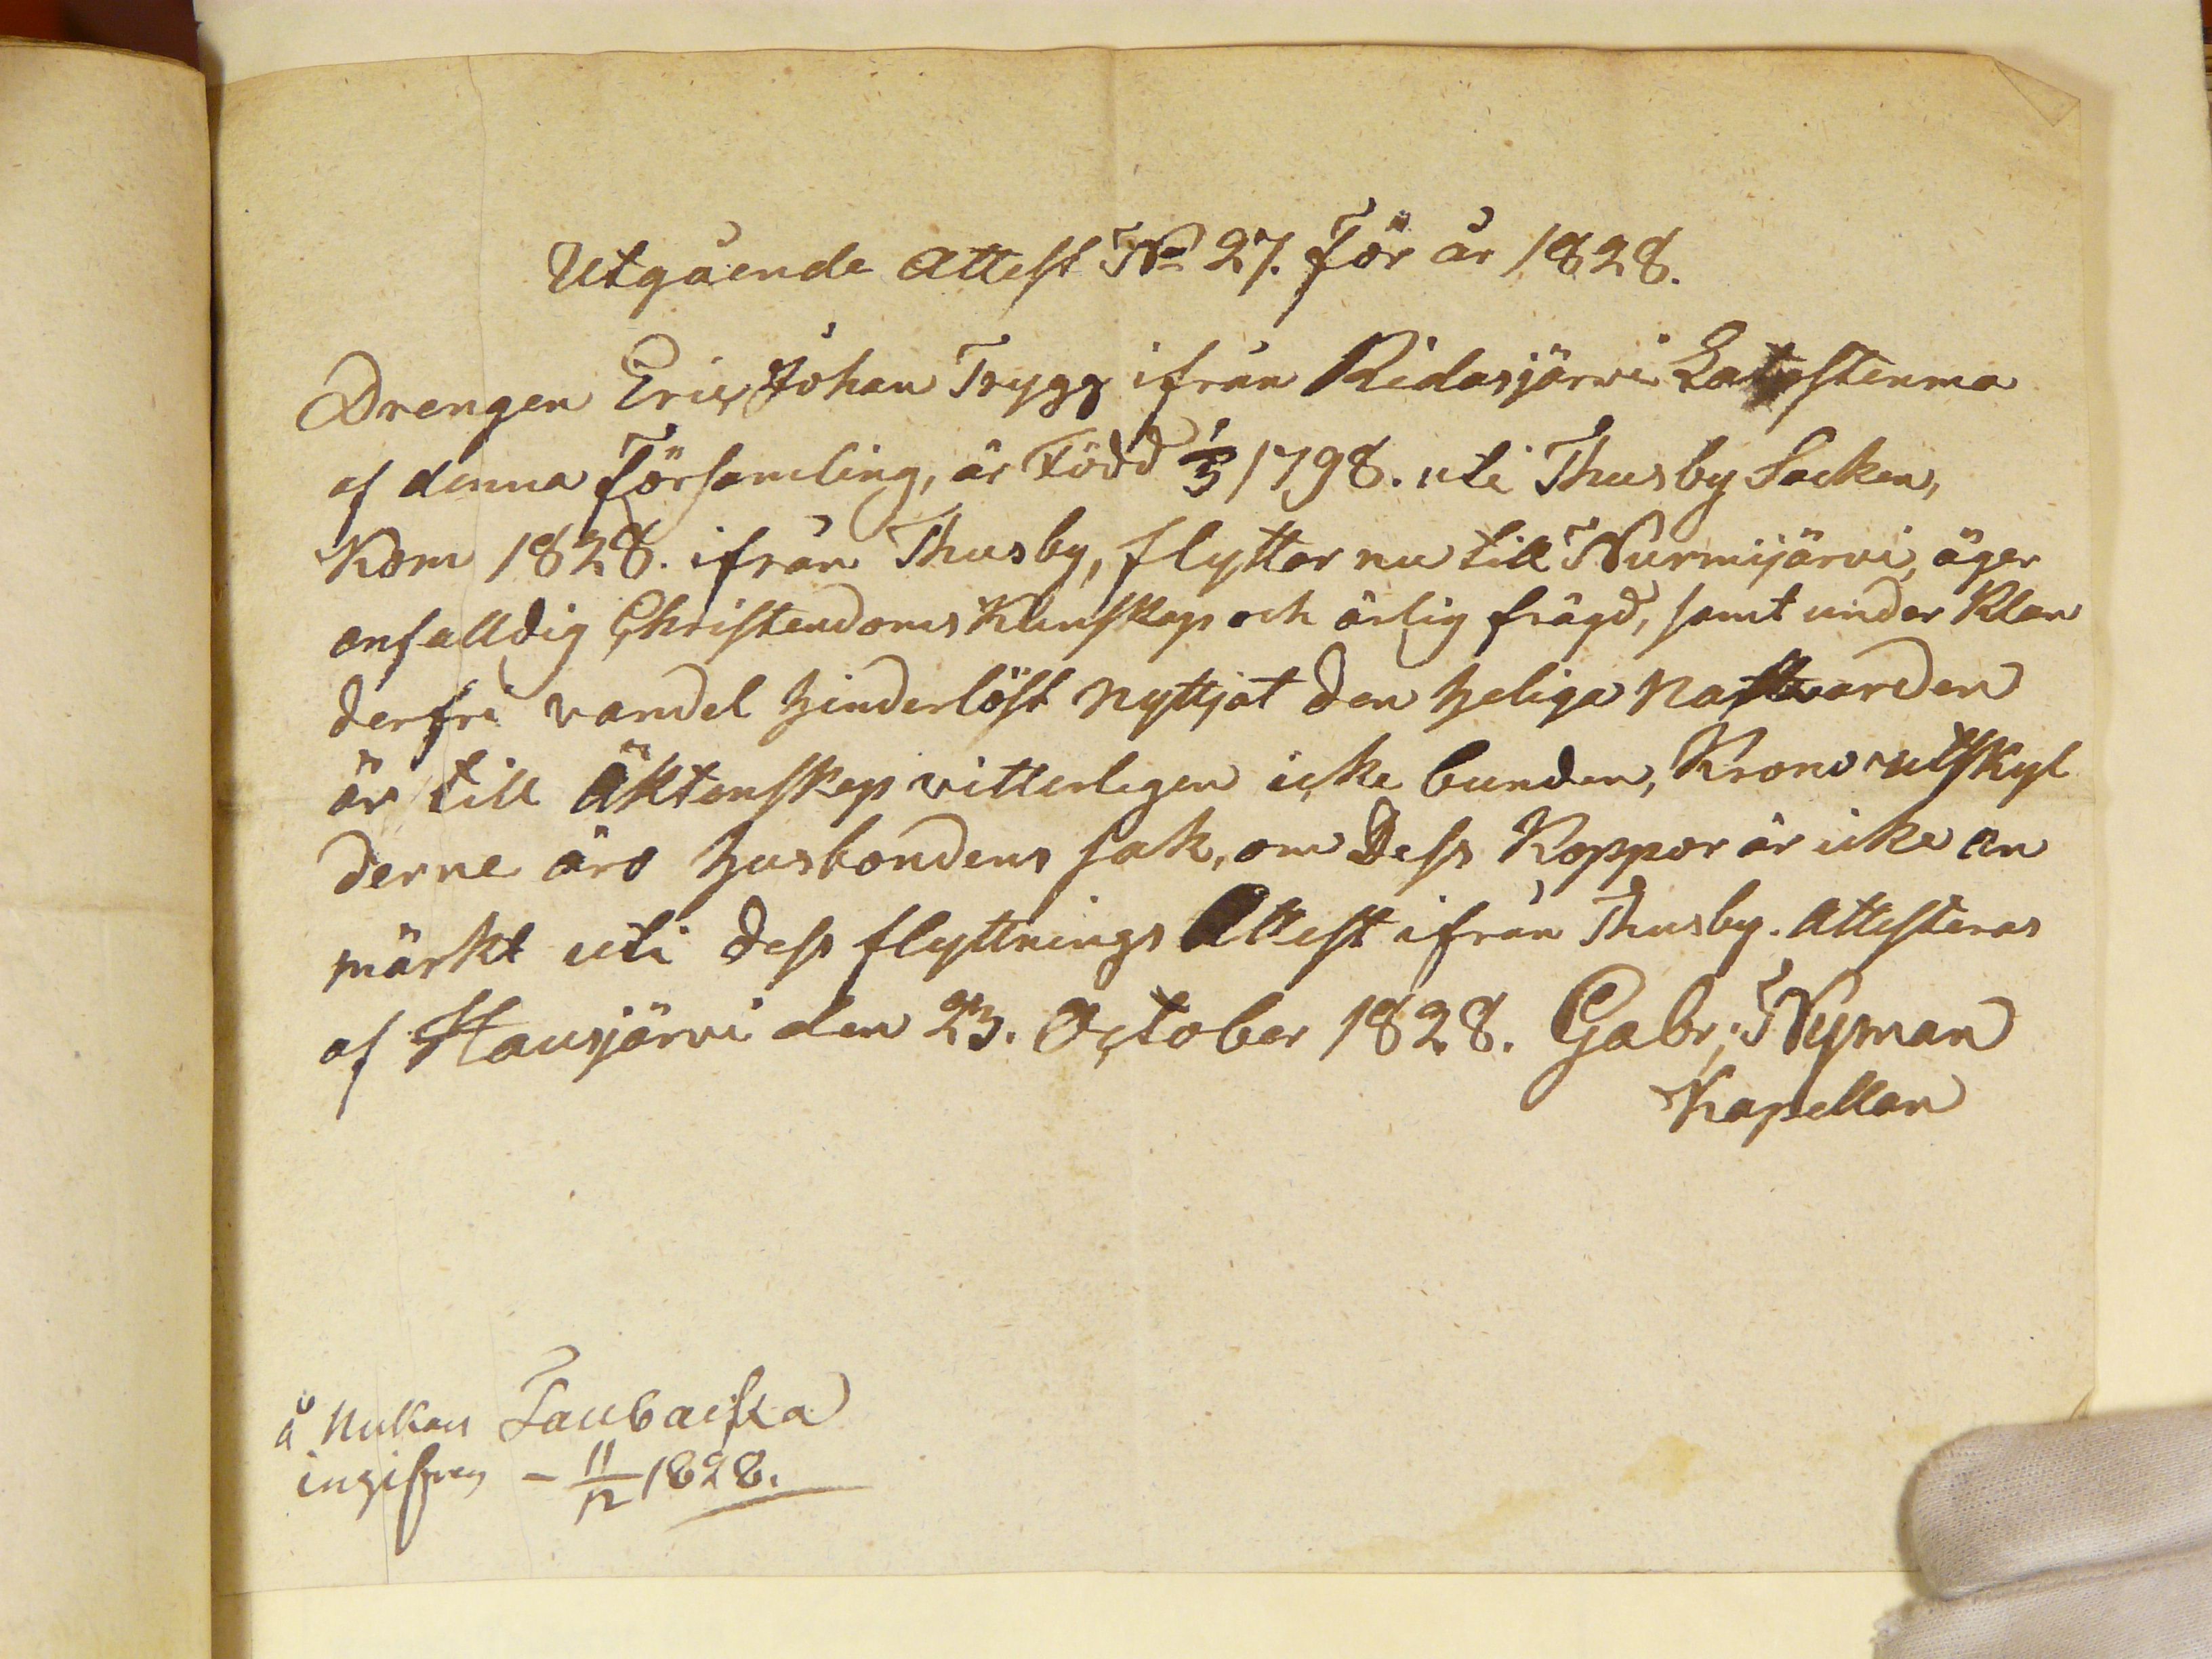 Utgående Attest No 27. för år 1828.
Drengen Eric Johan Trygg ifrån Ridasjärvi
af denna Församling, är Född 1/3 1798. uti Thusby Socken,
Kom 1828. ifrån Thusby, flyttar nu till Nurmijärvi, äger
enfalldig Christendoms Kunskap och ärlig frägd, samt under Klan
derfri vandel hinderlöst nyttjat den heliga Nattvarden
är till Äktenskap vitterligen icke bunden, Krono utskyl
derne äro husbondens sak, om Dess Koppor är icke an
märkt uti dess flyttnings Attest ifrån Thusby. Attesteras
af Hausjärvi den 23. October 1828. Gabr: Nyman
Kapellan
å Nukari
ingifven – 11/12 1828.